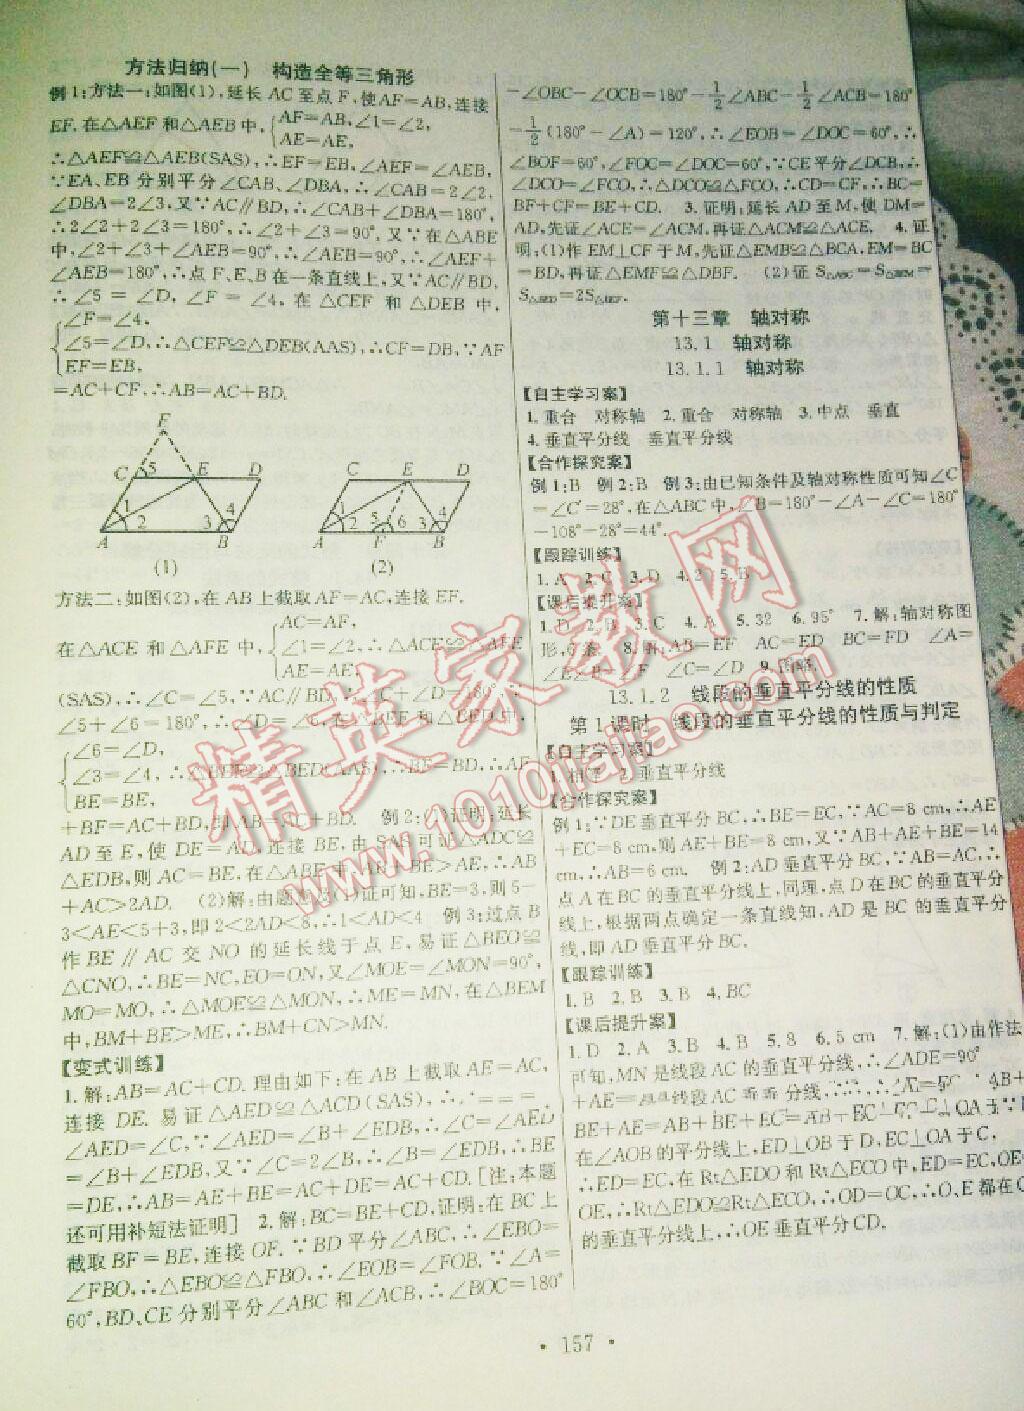 方法归纳(一)　构造全等三角形
例1:方法一:如图(1),延长AC至点F,使AF=AB,连接
EF.在△AEF和△AEB中,
AF=AB,∠1=∠2,
AE=AE,
∴△AEF≌△AEB(SAS),∴EF=EB,∠AEF=∠AEB,
∵EA、EB分别平分∠CAB、∠DBA,∴∠CAB=2∠2,
∠DBA=2∠3,又∵AC∥BD,∴∠CAB+∠DBA=180°,
∴2∠2+2∠3=180°,∴∠2+∠3=90°,又∵在△ABE
中,∠2+∠3+∠AEB=90°,∴∠AEB=90°,∴∠AEF+
∠AEB=180°,∴点F、E、B在一条直线上,又∵AC∥BD,
∴∠5=∠D,∠F=∠4,在△CEF和△DEB中,
∠F=∠4,
∠5=∠D,∴△CEF≌△DEB(AAS),∴CF=DB,∵AF
EF=EB,
=AC+CF,∴AB=AC+BD.
F
C 5 E D
1 2 3 4
A B
(1)
C E D
1 2 5 6 3 4
A F B
(2)
方法二:如图(2),在AB上截取AF=AC,连接EF.
AC=AF,
在△ACE和△AFE中,∠1=∠2,∴△ACE≌△AFE
AE=AE,
(SAS),∴∠C=∠5,∵AC∥BD,∴∠C+∠D=180°,∵
∠5+∠6=180°,∴∠D=∠6,在△BEF和△BED中,
∠6=∠D,
∠3=∠4,∴△BEF≌△BED(AAS),∴BF=BD,∴AF
BE=BE,
+BF=AC+BD,即AB=AC+BD.　例2:(1)证明:延长
AD至E,使DE=AD,连接BE,由SAS可证△ADC≌
△EDB,则AC=BE.在△ABE中,AB+BE>AE,∴AB
+AC>2AD.　(2)解:由题意及(1)证可知,BE=3,则5-
3<AE<5+3,即2<2AD<8,∴1<AD<4　例3:过点B
作BE∥AC交NO的延长线于点E,易证△BEO≌
△CNO,∴BE=NC,EO=ON,又∠MOE=∠MON=90°,
MO=MO,∴△MOE≌△MON,∴ME=MN,在△BEM
中,BM+BE>ME,∴BM+CN>MN.
【变式训练】
1.解:AB=AC+CD.理由如下:在AB上截取AE=AC,
连接DE.易证△AED≌△ACD(SAS),∴
∠AED=∠C,∵∠AED=∠B+∠EDB,∴∠C=∠AED
=∠B+∠EDB,又∵∠C=2∠B,∴∠B=∠EDB,∴BE
=DE,∴AB=AE+BE=AC+DE=AC+CD.[注:本题
还可用补短法证明]　2.解:BC=BE+CD,证明:在BC上
截取BF=BE,连接OF.∵BD平分∠ABC,∴∠EBO=
∠FBO,∴△EBO≌△FBO,∴∠EOB=∠FOB.∵∠A=
60°,BD、CE分别平分∠ABC和∠ACB,∴∠BOC=180°
-∠OBC-∠OCB=180°-1/2∠ABC-1/2∠ACB=180°
-1/2(180°-∠A)=120°,∴∠EOB=∠DOC=60°,∴
∠BOF=60°,∠FOC=∠DOC=60°,∵CE平分∠DCB,∴
∠DCO=∠FCO,∴△DCO≌△FCO,∴CD=CF,∴BC=
BF+CF=BE+CD.　3.证明:延长AD至M,使DM=
AD,先证∠ACE=∠ACM,再证△ACM≌△ACE.　4.证
明:(1)作EM⊥CF于M,先证△EMB≌△BCA,EM=BC
=BD,再证△EMF≌△DBF.　(2)证S△ABC=S△BEM=
S△BED=2S△BEF.
第十三章　轴对称
13.1　轴对称
13.1.1　轴对称
【自主学习案】
1.重合　对称轴　2.重合　对称轴　3.中点　垂直
4.垂直平分线　垂直平分线
【合作探究案】
例1:B　例2:B　例3:由已知条件及轴对称性质可知∠C
=∠C′=28°,在△ABC中,∠B=180°-∠A-∠C=180°
-108°-28°=44°.
【跟踪训练】
1.A　2.C　3.D　4.2　5.B
【课后提升案】
1.D　2.B　3.C　4.A　5.32　6.95°　7.解:轴对称图
形,6条　8.解:AB=EF　AC=ED　BC=FD　∠A=
∠E　∠B=∠F　∠C=∠D　9.图略.
13.1.2　线段的垂直平分线的性质
第1课时　线段的垂直平分线的性质与判定
【自主学习案】
1.相等　2.垂直平分线
【合作探究案】
例1:∵DE垂直平分BC,∴BE=EC,∵AC=8 cm,∴AE
+EC=8 cm,则AE+BE=8 cm,又∵AB+AE+BE=14
cm,∴AB=6 cm.　例2:AD垂直平分BC,∵AB=AC,∴
点A在BC的垂直平分线上,同理,点D在BC的垂直平分
线上,根据两点确定一条直线知,AD是BC的垂直平分
线,即AD垂直平分BC.
【跟踪训练】
1.B　2.B　3.B　4.BC
【课后提升案】
1.D　2.A　3.B　4.B　5.8　6.5 cm　7.解:(1)由作法
可知,MN是线段AC的垂直平分线,∴∠ADE=90°
BE+AE=AB+BE
在∠AOB的平分线上,ED⊥OB于D,EC⊥OA于C,
∴ED=EC,在Rt△EDO和Rt△ECO中,ED=EC,OE=
OE,∴Rt△EDO≌Rt△ECO,∴OD=OC,∴O、E都在C
的垂直平分线上,∴OE垂直平分CD.
· 157 ·
精英家教网
www.1010jiajiao.com